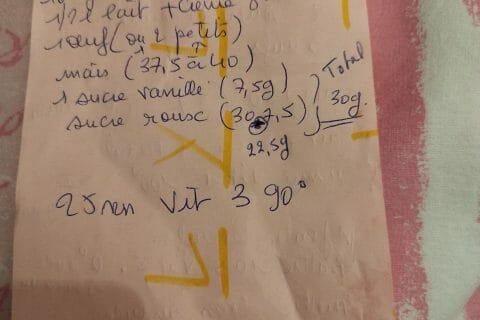 1/2 l lait + Crème
1 œuf (ou 2 petits)
maïs (37,5 à 40)
1 sucre vanillé (7,5g) Total
sucre roux (30-7,5) 30g.
22,5g
25 mn Vit 3 90°